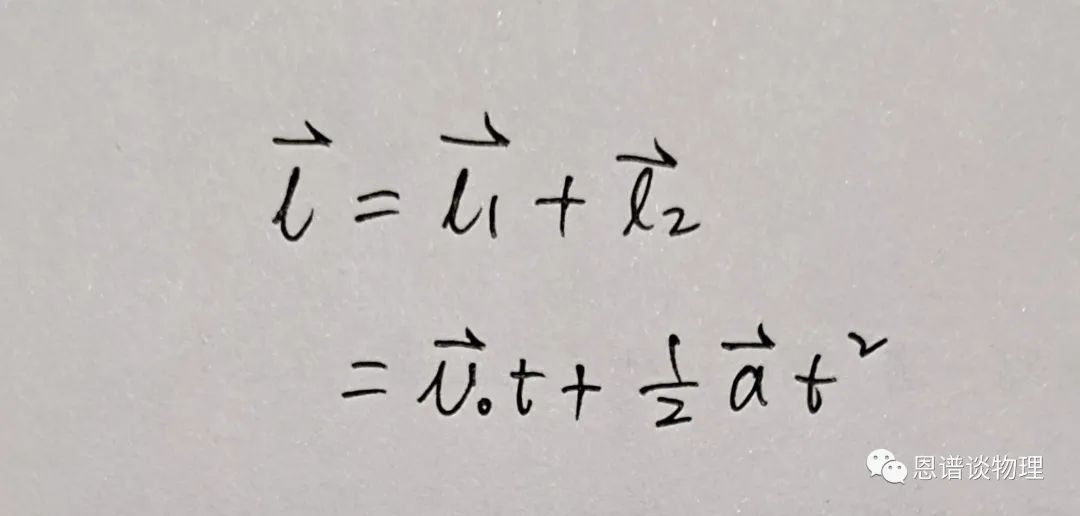 \vec{l} = \vec{l}_1 + \vec{l}_2
= \vec{v}_0 t + \frac{1}{2} \vec{a} t^2
恩谱谈物理